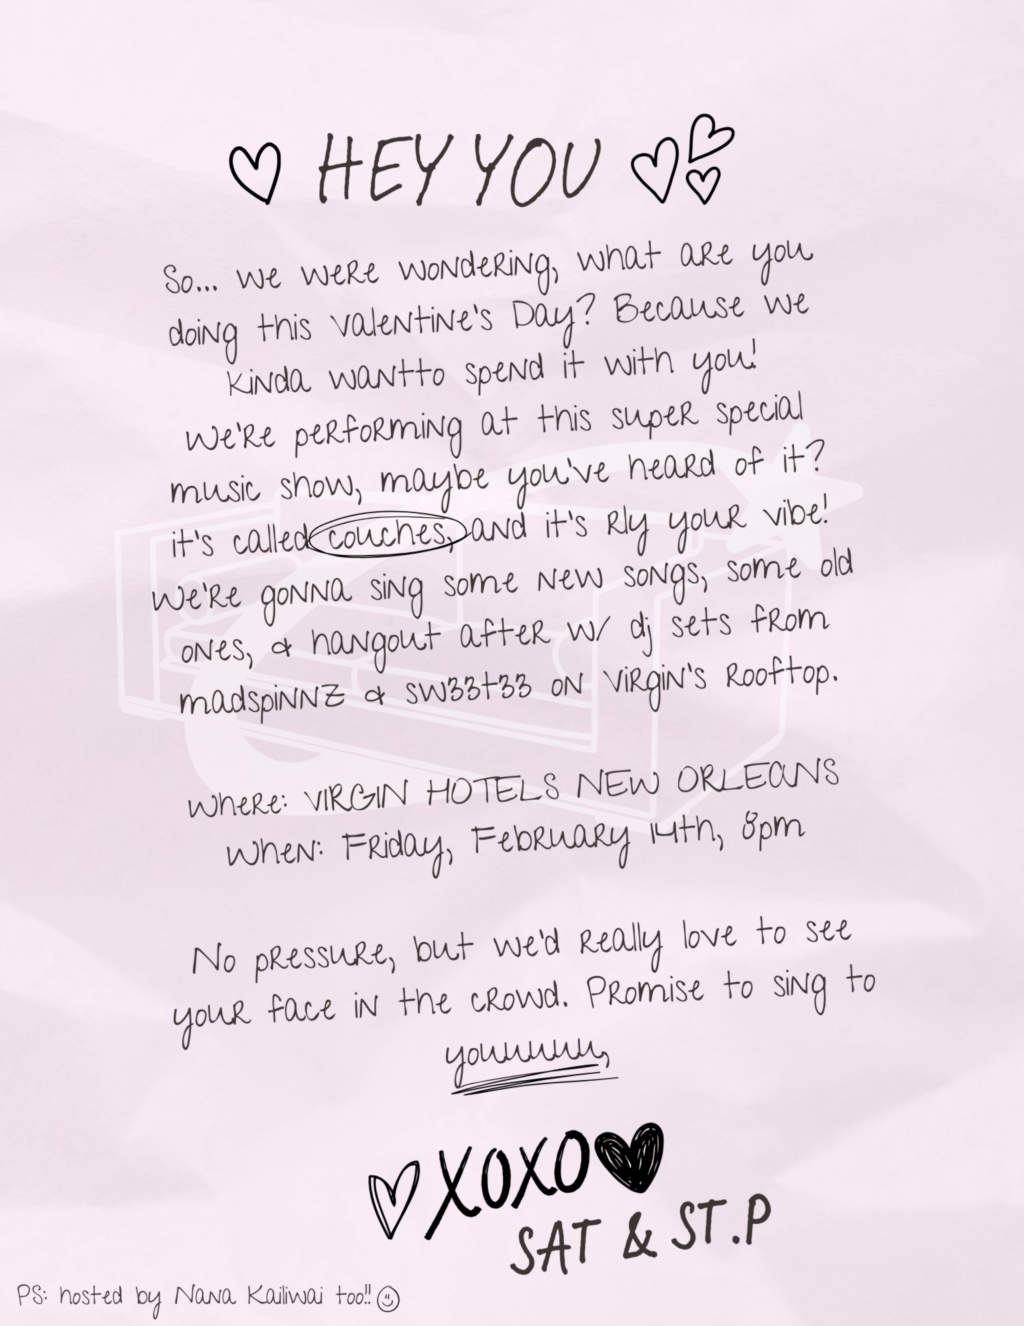 HEY YOU
So... we were wondering, what are you
doing this Valentine's Day? Because we
kinda wantto spend it with you!
we're performing at this super special
music show, maybe you've heard of it?
it's called couches, and it's rly your vibe!
we're gonna sing some new songs, some old
ones, & hangout after w/ dj sets from
madspinnz & sw33t33 on Virgin's rooftop.
where: VIRGIN HOTELS NEW ORLEANS
when: Friday, February 14th, 8pm
No pressure, but we'd really love to see
your face in the crowd. Promise to sing to
youuuuuu,
XOXO
SAT & ST.P
PS: hosted by Nana Kailiwai too!!